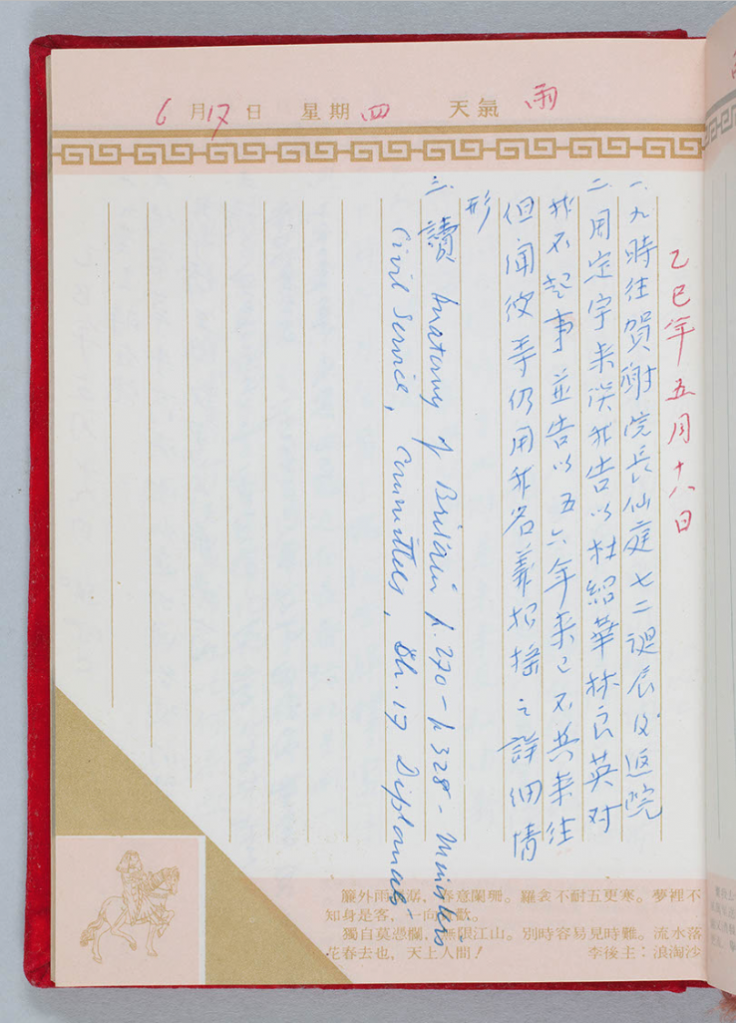 6月17日 星期四 天氣 雨
乙巳年五月十八日
一、九時往賀謝院長仙庭七二誕辰後返院
二、用定宇来談我告以杜紹華林良英对
我不起事並告以五六年来已不共来往
但聞彼等仍用我名義招搖之詳細情
形
三、讀 Anatomy of Britain p.270-p.328 - Ministers
Civil Service, Committees, Ch.17 Diplomats
簾外雨潺潺，春意闌珊。羅衾不耐五更寒。夢裡不
知身是客，一向貪歡。
獨自莫憑欄，無限江山。別時容易見時難。流水落
花春去也，天上人間！ 李後主：浪淘沙